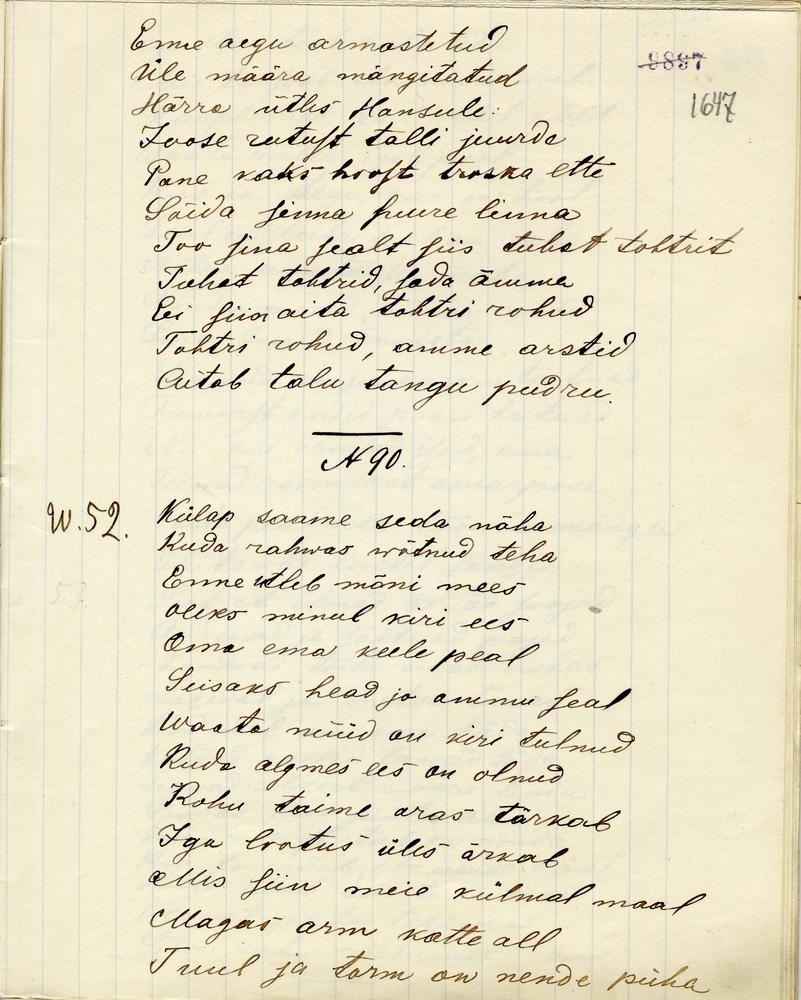 Enne aegu armastetud
9897
Üle määra mängitatud
1647
Härra ütles Hansule:
Joose rutust talli juurde
Pane kaks hoost troska ette
Sõida sinna suure linna
Too sina sealt siis tuhat tohtrit
Tuhat tohtrid, sada ämma
Ei siin aita tohtri rohud
Tohtri rohud, amme arstid
Aitab talu tangu pudru.
N 90.
W. 52.
Külap saame seda näha
Kuda rahwas wõtnud teha
Enne ütleb mõni mees
Oleks minul kiri ees
Oma ema keele peal
Seisaks head jo ammu seal
Waata nüüd on kiri tulnud
Kuda algmes ees on olnud
Rohu taime oras tärkab
Iga lootus üles ärkab
Mis siin meie külmal maal
Magas arm katte all
Tuul ja torm on nende püha